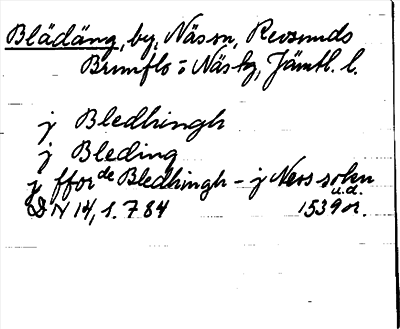 Blädäng, by, Näs sn, Revsunds
Brunflo o Näs tg, Jämtl. l.
j Bledhingh
j Bleding
j fforde Bledhingh - j Ness sokn
u.d.
DN 14, 1. 784 1539 or.